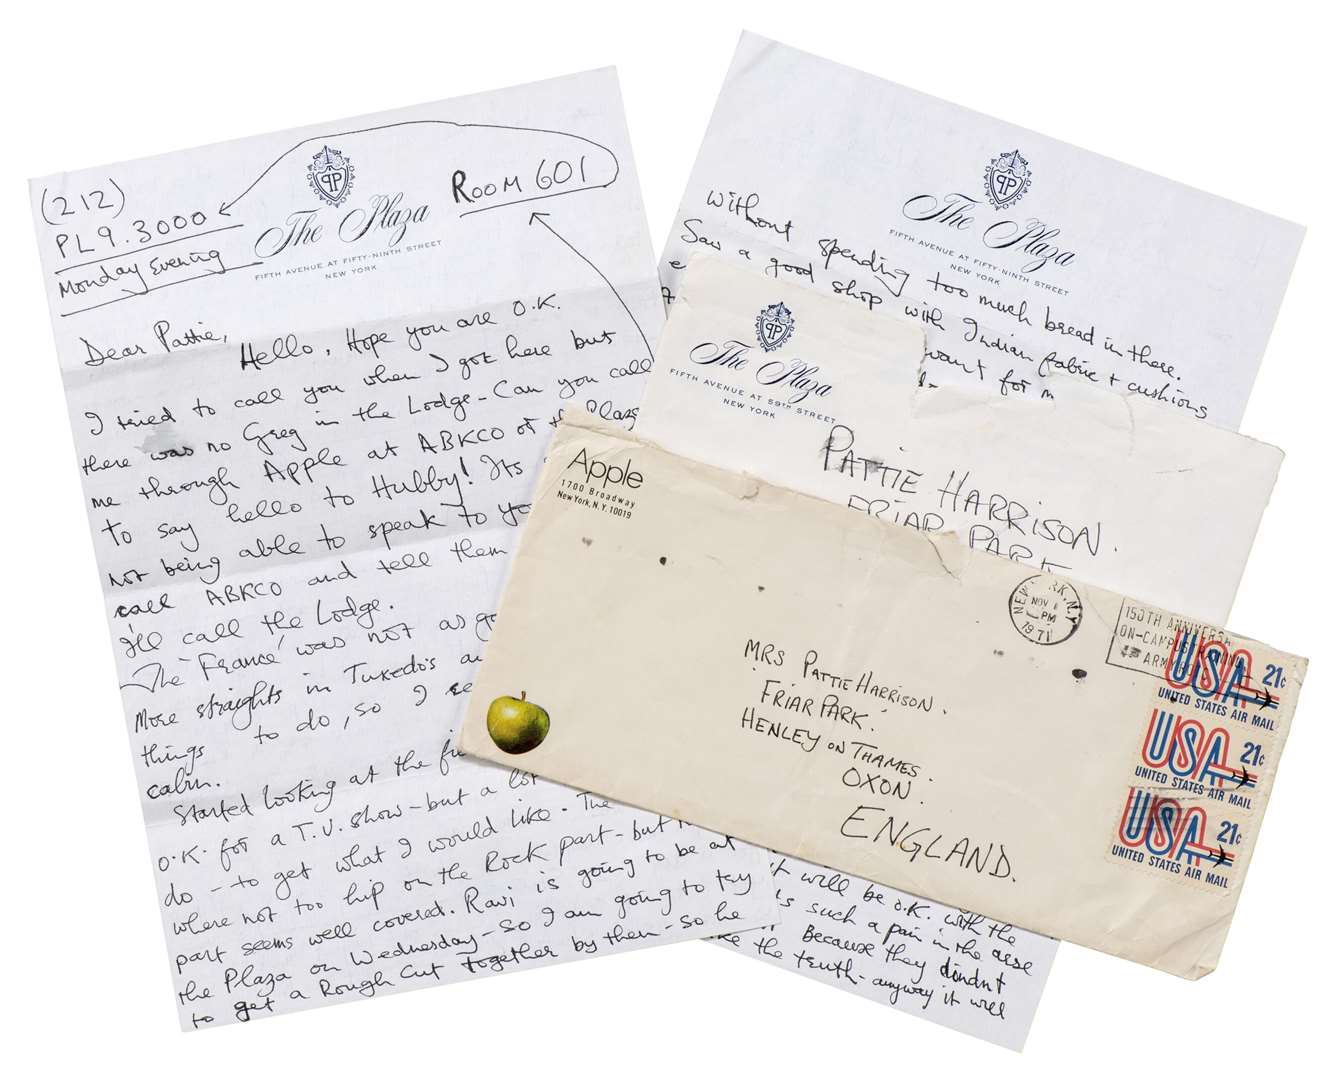 (212)
PL9.3000
Monday Evening
ROOM 601
The Plaza
FIFTH AVENUE AT FIFTY-NINTH STREET
NEW YORK
Dear Pattie,
Hello, Hope you are O.K.
I tried to call you when I got here but
there was no Greg in the Lodge - Can you call
me through Apple at ABKCO or the Plaza
to say hello to Hubby! Its
not being able to speak to yo
call ABKCO and tell them
I'll call the Lodge.
The 'France' was not as go
More straights in Tuxedo's a
things to do, so I
cabin.
Started looking at the fi
O.K. for a T.V. show - but a lot
do - to get what I would like. The
where not too hip on the Rock part - but
part seems well covered. Ravi is going to be at
the Plaza on Wednesday - so I am going to try
to get a Rough Cut together by then - so he
The Plaza
FIFTH AVENUE AT FIFTY-NINTH STREET
NEW YORK
without spending too much bread in there.
Saw a good shop with Indian fabric + cushions
want for m
it will be O.K. with the
is such a pain in the arse
Because they dindnt
the truth - anyway it will
The Plaza
FIFTH AVENUE AT 59TH STREET
NEW YORK
PATTIE HARRISON.
FRIAR PARK
Apple
1700 Broadway
New York, N.Y. 10019
NEW YORK, N.Y.
NOV
PM
1971
150TH ANNIVERSA
ON-CAMPUS TRAINING
ARMY
MRS PATTIE HARRISON.
'FRIAR PARK'.
HENLEY ON THAMES.
OXON.
ENGLAND.
USA 21c
UNITED STATES AIR MAIL
USA 21c
UNITED STATES AIR MAIL
USA 21c
UNITED STATES AIR MAIL